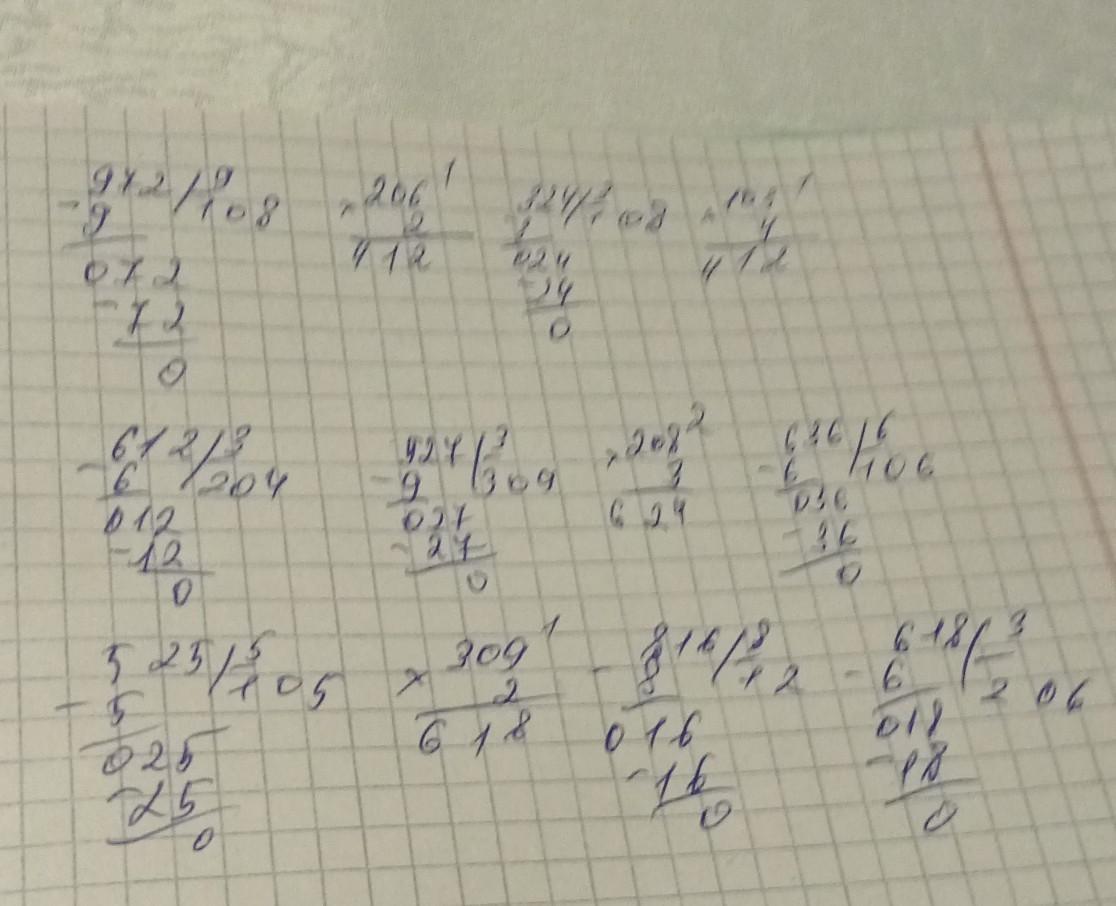 972/9 206¹ 324/3 103¹
- 9 108 × 2 3 108 × 4
072 412 024 412
- 72 - 24
0 0
612/3 927/3 × 208² 636/6
- 6 204 - 9 309 3 - 6 106
012 027 624 036
- 12 - 27 - 36
0 0 0
525/5 × 309¹ 816/8 618/3
- 5 105 2 - 8 12 - 6 206
025 618 016 018
- 25 - 16 - 18
0 0 0